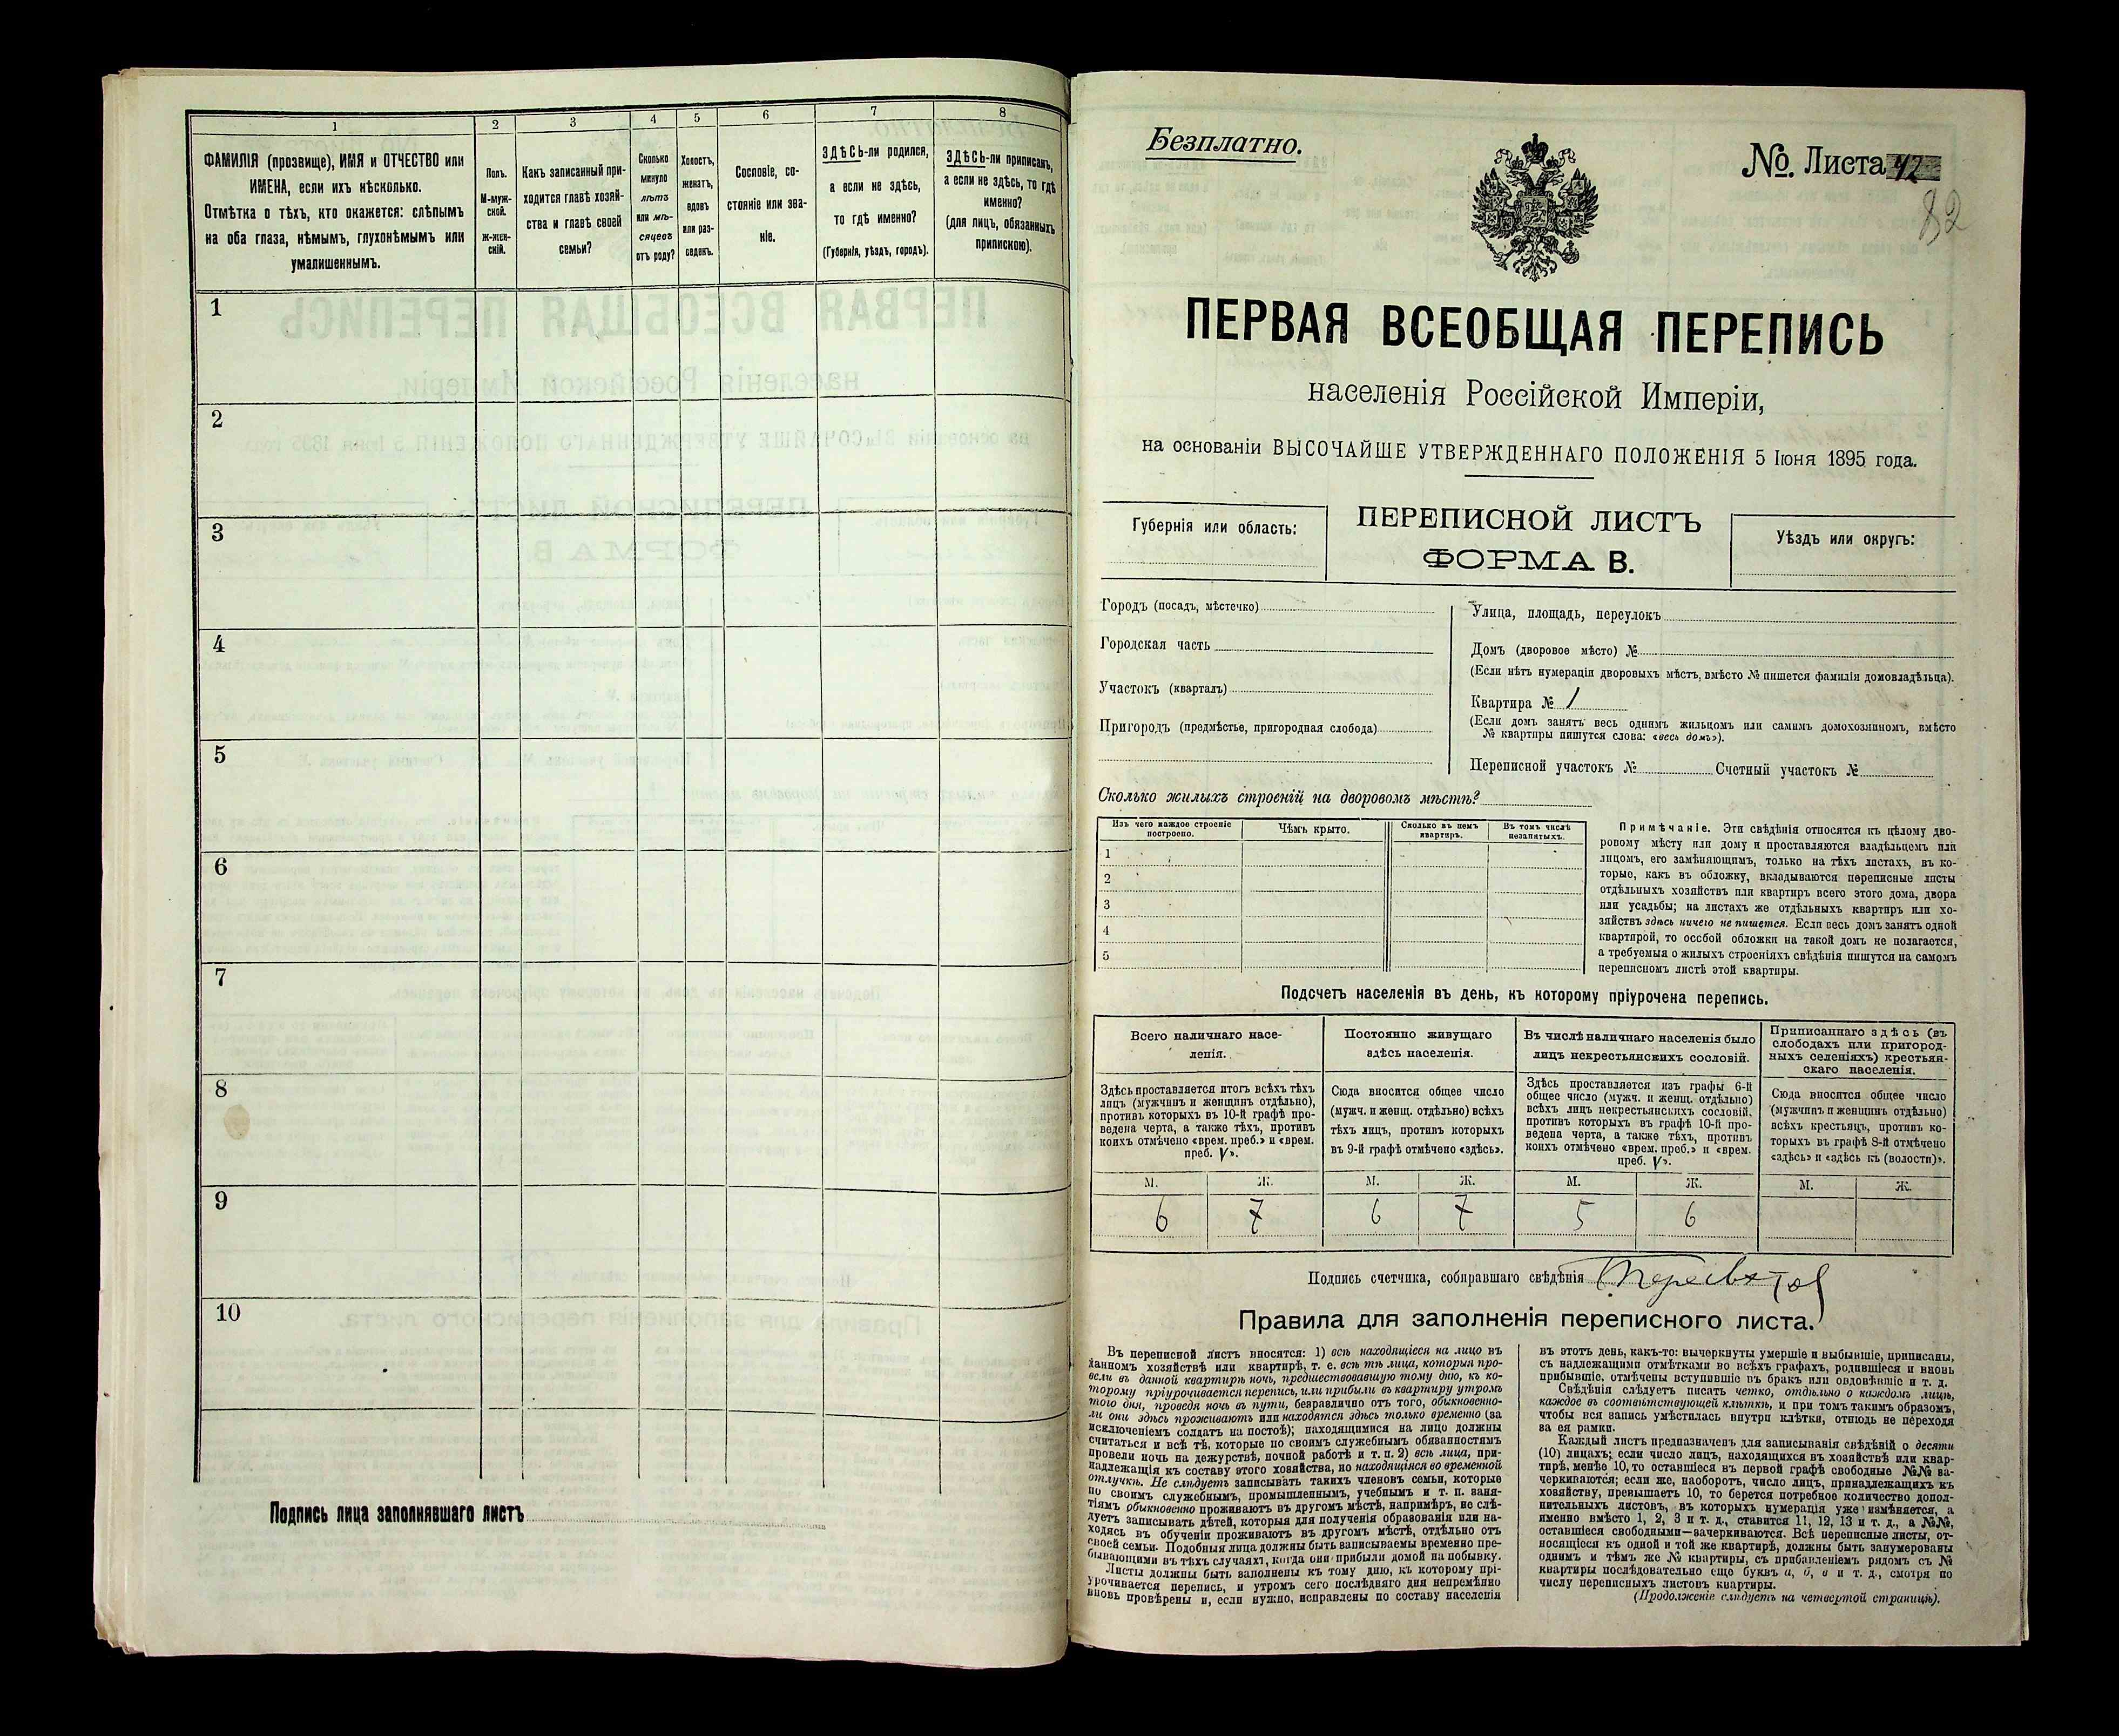 1 2 3 4 5 6 7 8
ФАМИЛІЯ (прозвище), ИМЯ и ОТЧЕСТВО или
ИМЕНА, если ихъ нѣсколько.
Отмѣтка о тѣхъ, кто окажется: слѣпымъ
на оба глаза, нѣмымъ, глухонѣмымъ или
умалишеннымъ.
Полъ.
М-муж-
ской.
Ж-жен-
скій.
Какъ записанный при-
ходится главѣ хозяй-
ства и главѣ своей
семьи?
Сколько
минуло
лѣтъ
или мѣ-
сяцевъ
отъ роду?
Холостъ,
женатъ,
вдовъ
или раз-
веденъ.
Сословіе, со-
стояніе или зва-
ніе.
ЗДѢСЬ-ли родился,
а если не здѣсь,
то гдѣ именно?
(Губернія, уѣздъ, городъ).
ЗДѢСЬ-ли приписанъ,
а если не здѣсь, то гдѣ
именно?
(для лицъ, обязанныхъ
припискою).
1
2
3
4
5
6
7
8
9
10
Подпись лица заполнявшаго листъ
Безплатно.
№. Листа 42
82
ПЕРВАЯ ВСЕОБЩАЯ ПЕРЕПИСЬ
населенія Россійской Имперіи,
на основаніи ВЫСОЧАЙШЕ УТВЕРЖДЕННАГО ПОЛОЖЕНІЯ 5 Іюня 1895 года.
Губернія или область:
ПЕРЕПИСНОЙ ЛИСТЪ
ФОРМА В.
Уѣздъ или округъ:
Городъ (посадъ, мѣстечко)
Городская часть
Участокъ (кварталъ)
Пригородъ (предмѣстье, пригородная слобода)
Улица, площадь, переулокъ
Домъ (дворовое мѣсто) №
(Если нѣтъ нумераціи дворовыхъ мѣстъ, вмѣсто № пишется фамилія домовладѣльца).
Квартира № 1
(Если домъ занятъ весь однимъ жильцомъ или самимъ домохозяиномъ, вмѣсто
№ квартиры пишутся слова: «весь домъ»).
Переписной участокъ № Счетный участокъ №
Сколько жилыхъ строеній на дворовомъ мѣстѣ?
Изъ чего каждое строеніе
построено.
Чѣмъ крыто.
Сколько въ немъ
квартиръ.
Въ томъ числѣ
незанятыхъ.
1
2
3
4
5
Примѣчаніе. Эти свѣдѣнія относятся къ цѣлому дво-
ровому мѣсту или дому и проставляются владѣльцемъ или
лицомъ, его замѣняющимъ, только на тѣхъ листахъ, въ ко-
торые, какъ въ обложку, вкладываются переписные листы
отдѣльныхъ хозяйствъ или квартиръ всего этого дома, двора
или усадьбы; на листахъ же отдѣльныхъ квартиръ или хо-
зяйствъ здѣсь ничего не пишется. Если весь домъ занятъ одной
квартирой, то особой обложки на такой домъ не полагается,
а требуемыя о жилыхъ строеніяхъ свѣдѣнія пишутся на самомъ
переписномъ листѣ этой квартиры.
Подсчетъ населенія въ день, къ которому пріурочена перепись.
Всего наличнаго насе-
ленія.
Постоянно живущаго
здѣсь населенія.
Въ числѣ наличнаго населенія было
лицъ некрестьянскихъ сословій.
Приписаннаго здѣсь (въ
слободахъ или пригород-
ныхъ селеніяхъ) крестьян-
скаго населенія.
Здѣсь проставляется итогъ всѣхъ тѣхъ
лицъ (мужчинъ и женщинъ отдѣльно),
противъ которыхъ въ 10-й графѣ про-
ведена черта, а также тѣхъ, противъ
коихъ отмѣчено «врем. преб.» и «врем.
преб. V».
Сюда вносится общее число
(мужч. и женщ. отдѣльно) всѣхъ
тѣхъ лицъ, противъ которыхъ
въ 9-й графѣ отмѣчено «здѣсь».
Здѣсь проставляется изъ графы 6-й
общее число (мужч. и женщ. отдѣльно)
всѣхъ лицъ некрестьянскихъ сословій,
противъ которыхъ въ графѣ 10-й про-
ведена черта, а также тѣхъ, противъ
коихъ отмѣчено «врем. преб.» и «врем.
преб. V».
Сюда вносится общее число
(мужчинъ и женщинъ отдѣльно)
всѣхъ крестьянъ, противъ ко-
торыхъ въ графѣ 8-й отмѣчено
«здѣсь» и «здѣсь къ (волости)».
М. Ж. М. Ж. М. Ж. М. Ж.
6 7 6 7 5 6
Подпись счетчика, собиравшаго свѣдѣнія
Правила для заполненія переписного листа.
Въ переписной листъ вносятся: 1) всѣ находящіеся на лицо въ
данномъ хозяйствѣ или квартирѣ, т. е. всѣ тѣ лица, которыя про-
вели въ данной квартирѣ ночь, предшествовавшую тому дню, къ ко-
торому пріурочивается перепись, или прибыли въ квартиру утромъ
того дня, проведя ночь въ пути, безразлично отъ того, обыкновенно-
ли они здѣсь проживаютъ или находятся здѣсь только временно (за
исключеніемъ солдатъ на постоѣ); находящимися на лицо должны
считаться и всѣ тѣ, которые по своимъ служебнымъ обязанностямъ
провели ночь на дежурствѣ, ночной работѣ и т. п. 2) всѣ лица, при-
надлежащія къ составу этого хозяйства, но находящіяся во временной
отлучкѣ. Не слѣдуетъ записывать такихъ членовъ семьи, которые
по своимъ служебнымъ, промышленнымъ, учебнымъ и т. п. заня-
тіямъ обыкновенно проживаютъ въ другомъ мѣстѣ, напримѣръ, не слѣ-
дуетъ записывать дѣтей, которыя для полученія образованія или на-
ходясь въ обученіи проживаютъ въ другомъ мѣстѣ, отдѣльно отъ
своей семьи. Подобныя лица должны быть записываемы временно пре-
бывающими въ тѣхъ случаяхъ, когда они прибыли домой на побывку.
Листы должны быть заполнены къ тому дню, къ которому прі-
урочивается перепись, и утромъ сего послѣдняго дня непремѣнно
вновь провѣрены и, если нужно, исправлены по составу населенія
въ этотъ день, какъ-то: вычеркнуты умершіе и выбывшіе, приписаны,
съ надлежащими отмѣтками во всѣхъ графахъ, родившіеся и вновь
прибывшіе, отмѣчены вступившіе въ бракъ или овдовѣвшіе и т. д.
Свѣдѣнія слѣдуетъ писать четко, отдѣльно о каждомъ лицѣ,
каждое въ соотвѣтствующей клѣткѣ, и при томъ такимъ образомъ,
чтобы вся запись умѣстилась внутри клѣтки, отнюдь не переходя
за ея рамки.
Каждый листъ предназначенъ для записыванія свѣдѣній о десяти
(10) лицахъ; если число лицъ, находящихся въ хозяйствѣ или квар-
тирѣ, менѣе 10, то оставшіеся въ первой графѣ свободные №№ за-
черкиваются; если же, наоборотъ, число лицъ, принадлежащихъ къ
хозяйству, превышаетъ 10, то берется потребное количество допол-
нительныхъ листовъ, въ которыхъ нумерація уже измѣняется, а
именно вмѣсто 1, 2, 3 и т. д., ставится 11, 12, 13 и т. д., а №№,
оставшіеся свободными—зачеркиваются. Всѣ переписные листы, от-
носящіеся къ одной и той же квартирѣ, должны быть занумерованы
однимъ и тѣмъ же № квартиры, съ прибавленіемъ рядомъ съ №
квартиры послѣдовательно еще буквъ а, б, в и т. д., смотря по
числу переписныхъ листовъ квартиры.
(Продолженіе слѣдуетъ на четвертой страницѣ).